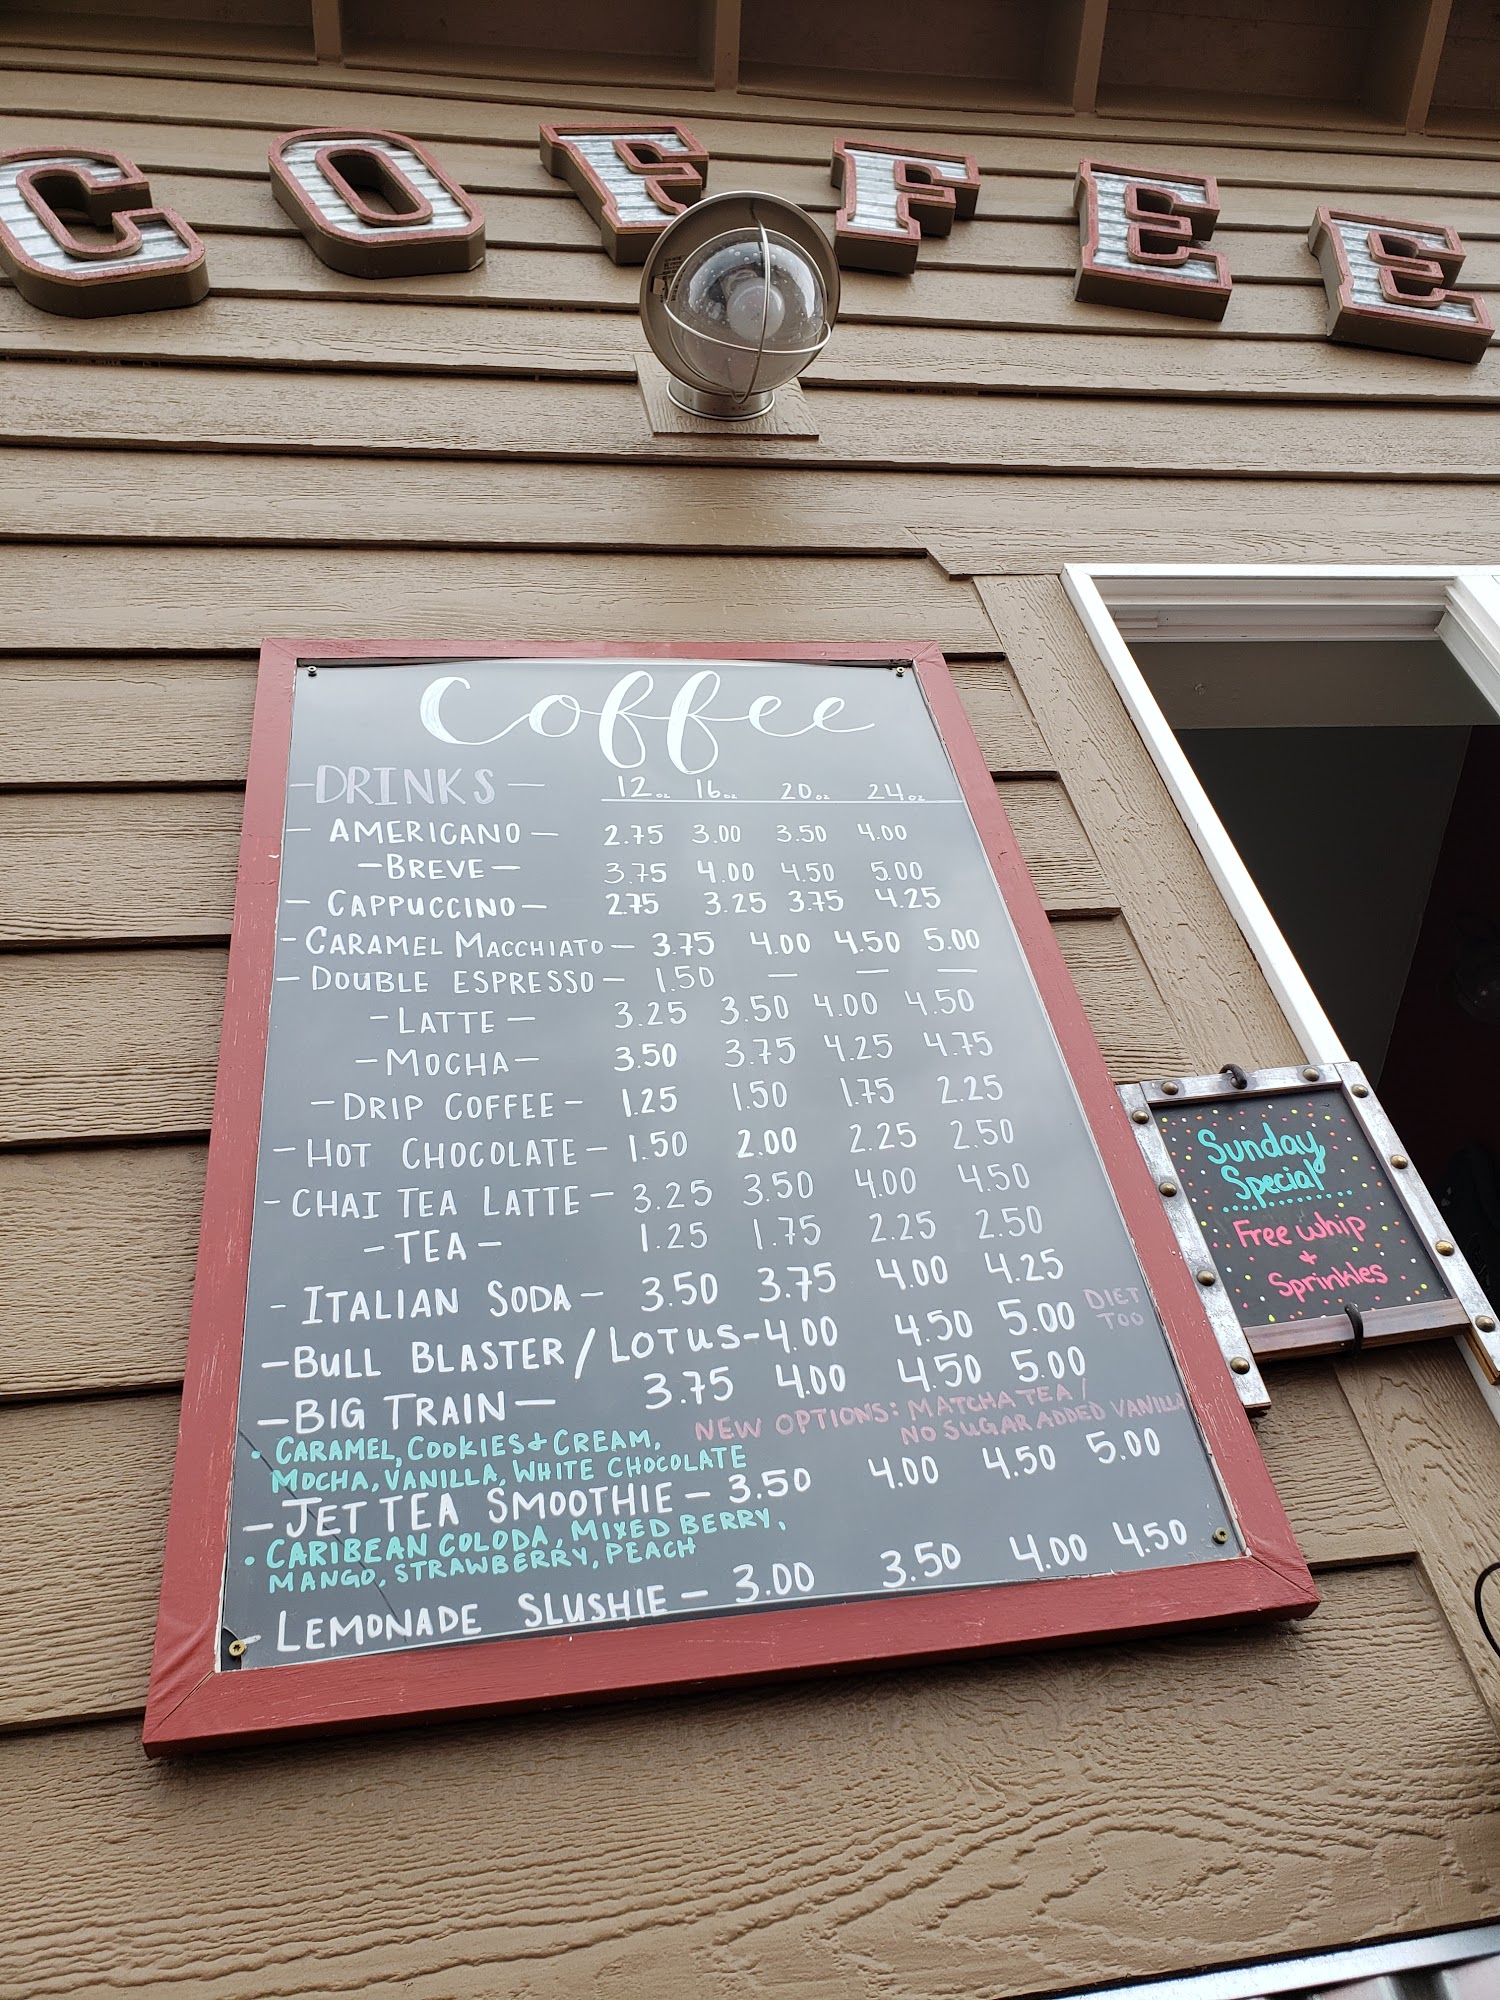 COFFEE
Coffee
-DRINKS- 12oz 16oz 20oz 24oz
- AMERICANO - 2.75 3.00 3.50 4.00
-BREVE- 3.75 4.00 4.50 5.00
- CAPPUCCINO- 2.75 3.25 3.75 4.25
-CARAMEL MACCHIATO- 3.75 4.00 4.50 5.00
-DOUBLE ESPRESSO- 1.50 — — —
-LATTE- 3.25 3.50 4.00 4.50
-MOCHA- 3.50 3.75 4.25 4.75
-DRIP COFFEE- 1.25 1.50 1.75 2.25
-HOT CHOCOLATE- 1.50 2.00 2.25 2.50
-CHAI TEA LATTE- 3.25 3.50 4.00 4.50
-TEA- 1.25 1.75 2.25 2.50
- ITALIAN SODA- 3.50 3.75 4.00 4.25
-BULL BLASTER/LOTUS-4.00 4.50 5.00 DIET
TOO
-BIG TRAIN- 3.75 4.00 4.50 5.00
NEW OPTIONS: MATCHA TEA/
NO SUGAR ADDED VANILLA
• CARAMEL, COOKIES & CREAM,
MOCHA, VANILLA, WHITE CHOCOLATE
-JET TEA SMOOTHIE- 3.50 4.00 4.50 5.00
• CARIBEAN COLODA, MIXED BERRY,
MANGO, STRAWBERRY, PEACH
- LEMONADE SLUSHIE- 3.00 3.50 4.00 4.50
Sunday
Special
Free whip
+
Sprinkles